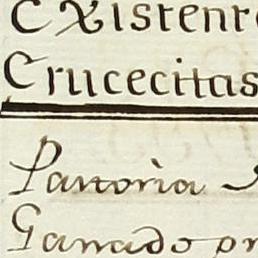 Existente
Crucecitas
Partoria
Ganado pr